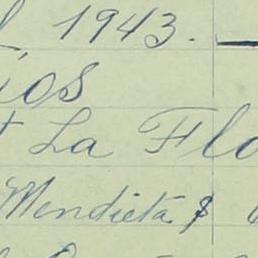 1943. —
ios
t La Flo
Mendieta $